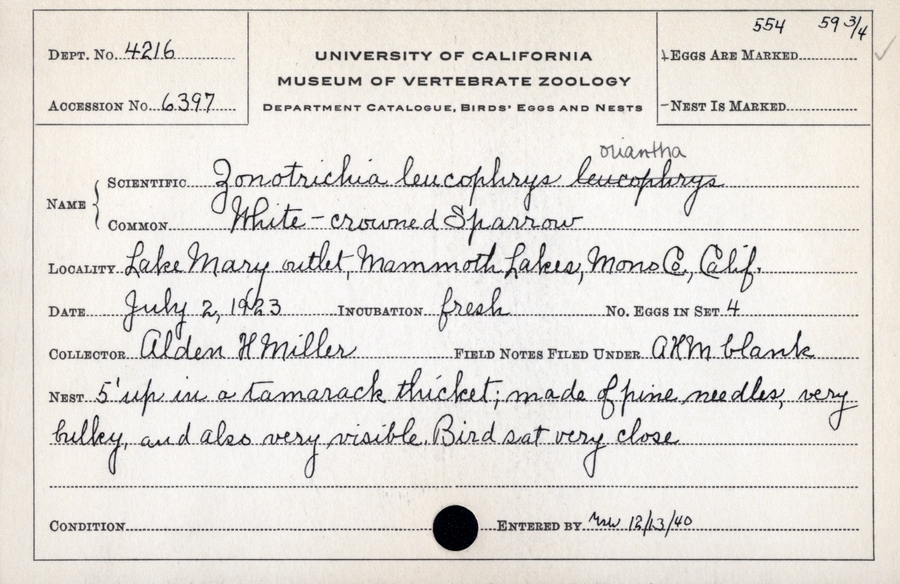 554 59 3/4
DEPT. No. 4216
UNIVERSITY OF CALIFORNIA
EGGS ARE MARKED
MUSEUM OF VERTEBRATE ZOOLOGY
ACCESSION No. 6397
DEPARTMENT CATALOGUE, BIRDS' EGGS AND NESTS
NEST IS MARKED
oriantha
NAME SCIENTIFIC Zonotrichia leucophrys leucophrys
COMMON White-crowned Sparrow
LOCALITY Lake Mary outlet, Mammoth Lakes, Mono Co., Calif.
DATE July 2, 1923 INCUBATION fresh No. EGGS IN SET 4
COLLECTOR Alden H Miller FIELD NOTES FILED UNDER AHM blank
NEST 5' up in a tamarack thicket; made of pine needles, very
bulky, and also very visible. Bird sat very close
CONDITION ENTERED BY 12/13/40